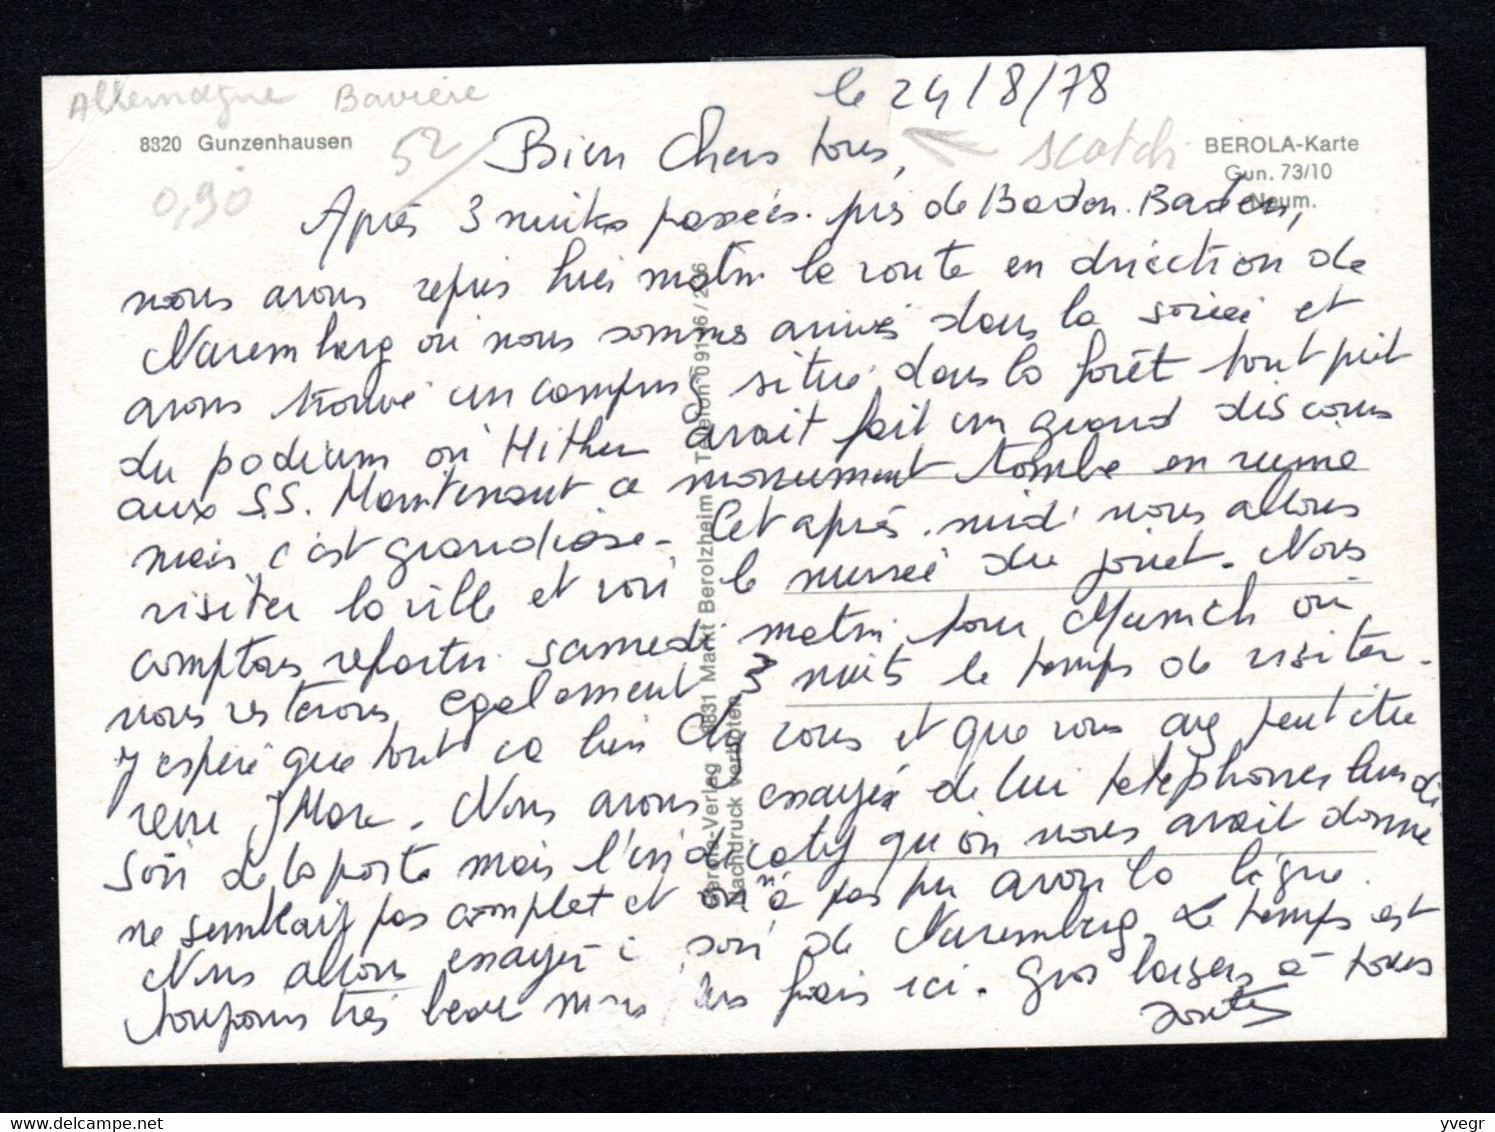 Allemagne Bavière
le 24/8/78
8820 Gunzenhausen
52
Bien Chers tous,
scotch
BEROLA-Karte
Gun. 73/10
Neum.
0,90
Après 3 nuits passées près de Baden. Baden,
nous avons repris hier matin la route en direction de
Nuremberg où nous sommes arrivés dans la soirée et
avons trouvé un campus situé dans la forêt tout près
du podium où Hitler avait fait un grand discours
aux S.S. Maintenant ce monument tombe en ruine
mais c'est grandiose. Cet après. midi nous allons
visiter la ville et voir le musée du jouet. Nous
comptons repartir samedi matin pour Munich où
nous resterons également 3 nuits le temps de visiter.
J'espère que tout va bien chez vous et que vous avez peut être
revu J Marc. Nous avons essayé de lui téléphoner lundi
soir de la poste mais l'indicatif qu'on nous avait donné
ne semblait pas complet et on n'a pas pu avoir la ligne.
Nous allons essayer ce soir de Nuremberg. Le temps est
toujours très beau mais très frais ici. Gros baisers à tous
Berola-Verlag 8831 Markt Berolzheim Telefon 09146/266
Nachdruck verboten